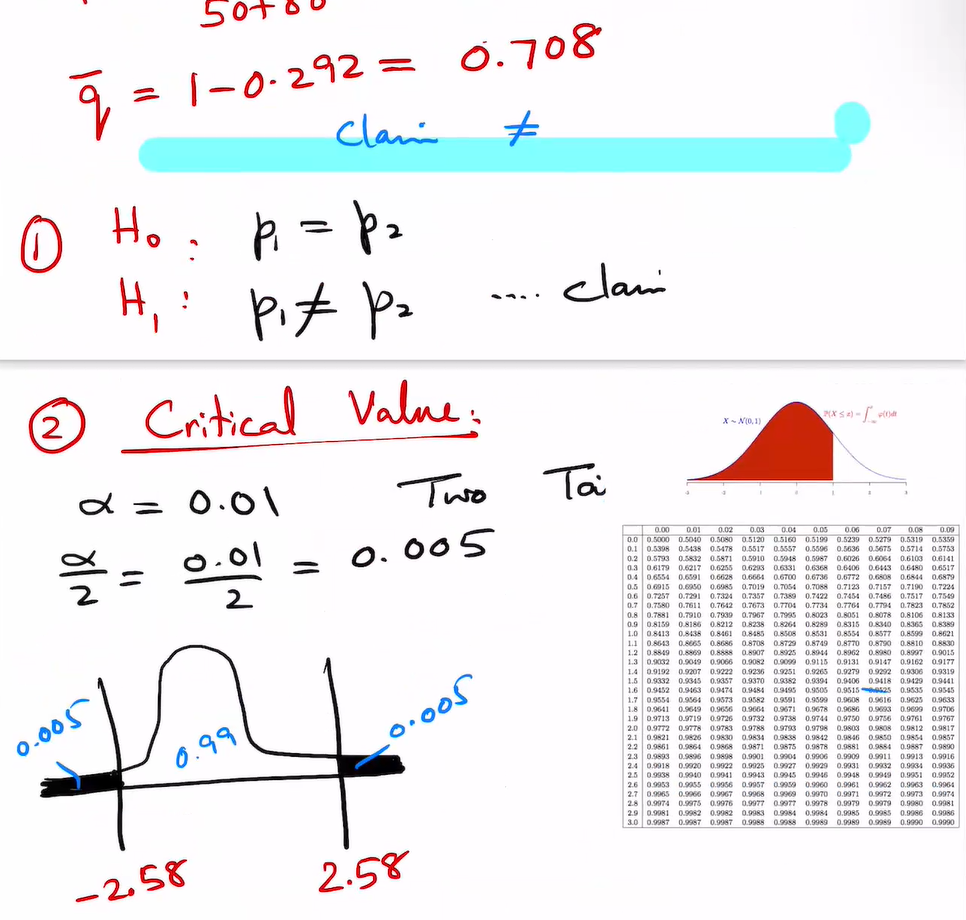 50+80
q̄ = 1-0.292 = 0.708
Claim ≠
① H₀ : p₁ = p₂
H₁ : p₁ ≠ p₂ .... claim
② Critical Value:
α = 0.01 Two Tai
α/2 = 0.01/2 = 0.005
0.005 0.99 0.005
-2.58 2.58
X ~ N(0,1) P(X ≤ a) = ∫ φ(t)dt
0.00 0.01 0.02 0.03 0.04 0.05 0.06 0.07 0.08 0.09
0.0 0.5000 0.5040 0.5080 0.5120 0.5160 0.5199 0.5239 0.5279 0.5319 0.5359
0.1 0.5398 0.5438 0.5478 0.5517 0.5557 0.5596 0.5636 0.5675 0.5714 0.5753
0.2 0.5793 0.5832 0.5871 0.5910 0.5948 0.5987 0.6026 0.6064 0.6103 0.6141
0.3 0.6179 0.6217 0.6255 0.6293 0.6331 0.6368 0.6406 0.6443 0.6480 0.6517
0.4 0.6554 0.6591 0.6628 0.6664 0.6700 0.6736 0.6772 0.6808 0.6844 0.6879
0.5 0.6915 0.6950 0.6985 0.7019 0.7054 0.7088 0.7123 0.7157 0.7190 0.7224
0.6 0.7257 0.7291 0.7324 0.7357 0.7389 0.7422 0.7454 0.7486 0.7517 0.7549
0.7 0.7580 0.7611 0.7642 0.7673 0.7704 0.7734 0.7764 0.7794 0.7823 0.7852
0.8 0.7881 0.7910 0.7939 0.7967 0.7995 0.8023 0.8051 0.8078 0.8106 0.8133
0.9 0.8159 0.8186 0.8212 0.8238 0.8264 0.8289 0.8315 0.8340 0.8365 0.8389
1.0 0.8413 0.8438 0.8461 0.8485 0.8508 0.8531 0.8554 0.8577 0.8599 0.8621
1.1 0.8643 0.8665 0.8686 0.8708 0.8729 0.8749 0.8770 0.8790 0.8810 0.8830
1.2 0.8849 0.8869 0.8888 0.8907 0.8925 0.8944 0.8962 0.8980 0.8997 0.9015
1.3 0.9032 0.9049 0.9066 0.9082 0.9099 0.9115 0.9131 0.9147 0.9162 0.9177
1.4 0.9192 0.9207 0.9222 0.9236 0.9251 0.9265 0.9279 0.9292 0.9306 0.9319
1.5 0.9332 0.9345 0.9357 0.9370 0.9382 0.9394 0.9406 0.9418 0.9429 0.9441
1.6 0.9452 0.9463 0.9474 0.9484 0.9495 0.9505 0.9515 0.9525 0.9535 0.9545
1.7 0.9554 0.9564 0.9573 0.9582 0.9591 0.9599 0.9608 0.9616 0.9625 0.9633
1.8 0.9641 0.9649 0.9656 0.9664 0.9671 0.9678 0.9686 0.9693 0.9699 0.9706
1.9 0.9713 0.9719 0.9726 0.9732 0.9738 0.9744 0.9750 0.9756 0.9761 0.9767
2.0 0.9772 0.9778 0.9783 0.9788 0.9793 0.9798 0.9803 0.9808 0.9812 0.9817
2.1 0.9821 0.9826 0.9830 0.9834 0.9838 0.9842 0.9846 0.9850 0.9854 0.9857
2.2 0.9861 0.9864 0.9868 0.9871 0.9875 0.9878 0.9881 0.9884 0.9887 0.9890
2.3 0.9893 0.9896 0.9898 0.9901 0.9904 0.9906 0.9909 0.9911 0.9913 0.9916
2.4 0.9918 0.9920 0.9922 0.9925 0.9927 0.9929 0.9931 0.9932 0.9934 0.9936
2.5 0.9938 0.9940 0.9941 0.9943 0.9945 0.9946 0.9948 0.9949 0.9951 0.9952
2.6 0.9953 0.9955 0.9956 0.9957 0.9959 0.9960 0.9961 0.9962 0.9963 0.9964
2.7 0.9965 0.9966 0.9967 0.9968 0.9969 0.9970 0.9971 0.9972 0.9973 0.9974
2.8 0.9974 0.9975 0.9976 0.9977 0.9977 0.9978 0.9979 0.9979 0.9980 0.9981
2.9 0.9981 0.9982 0.9982 0.9983 0.9984 0.9984 0.9985 0.9985 0.9986 0.9986
3.0 0.9987 0.9987 0.9987 0.9988 0.9988 0.9989 0.9989 0.9989 0.9990 0.9990